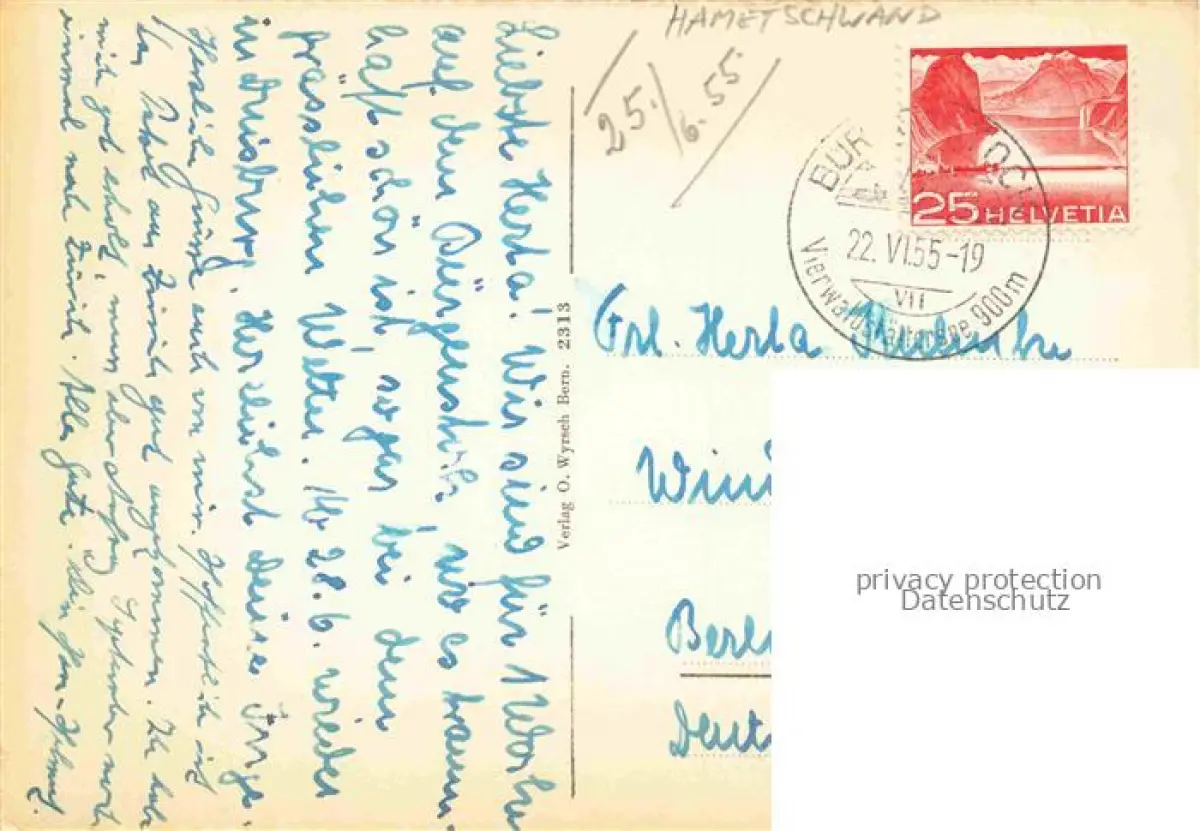 HAMETSCHWAND
25./6.55
25 HELVETIA
BÜR OCK
22. VI.55-19
VII
Vierwaldstättersee 900m
Liebste Herta! Wir sind für 1 Woche
auf dem Bürgenstock, wo es traum-
haft schön ist, sogar bei dem
grässlichen Wetter. Ab 28.6. wieder
in Duisburg. Herzlichst Deine Inge.
Herzliche Grüsse auch von mir. Hoffentlich ist
aus Zürich gut angekommen. Ich habe
mich gut erholt, muss aber Anfang September noch
einmal nach Zürich. Alles Gute. Dein
Verlag O. Wyrsch Bern. 2313
Frl. Herta
Berl
Deut
privacy protection
Datenschutz